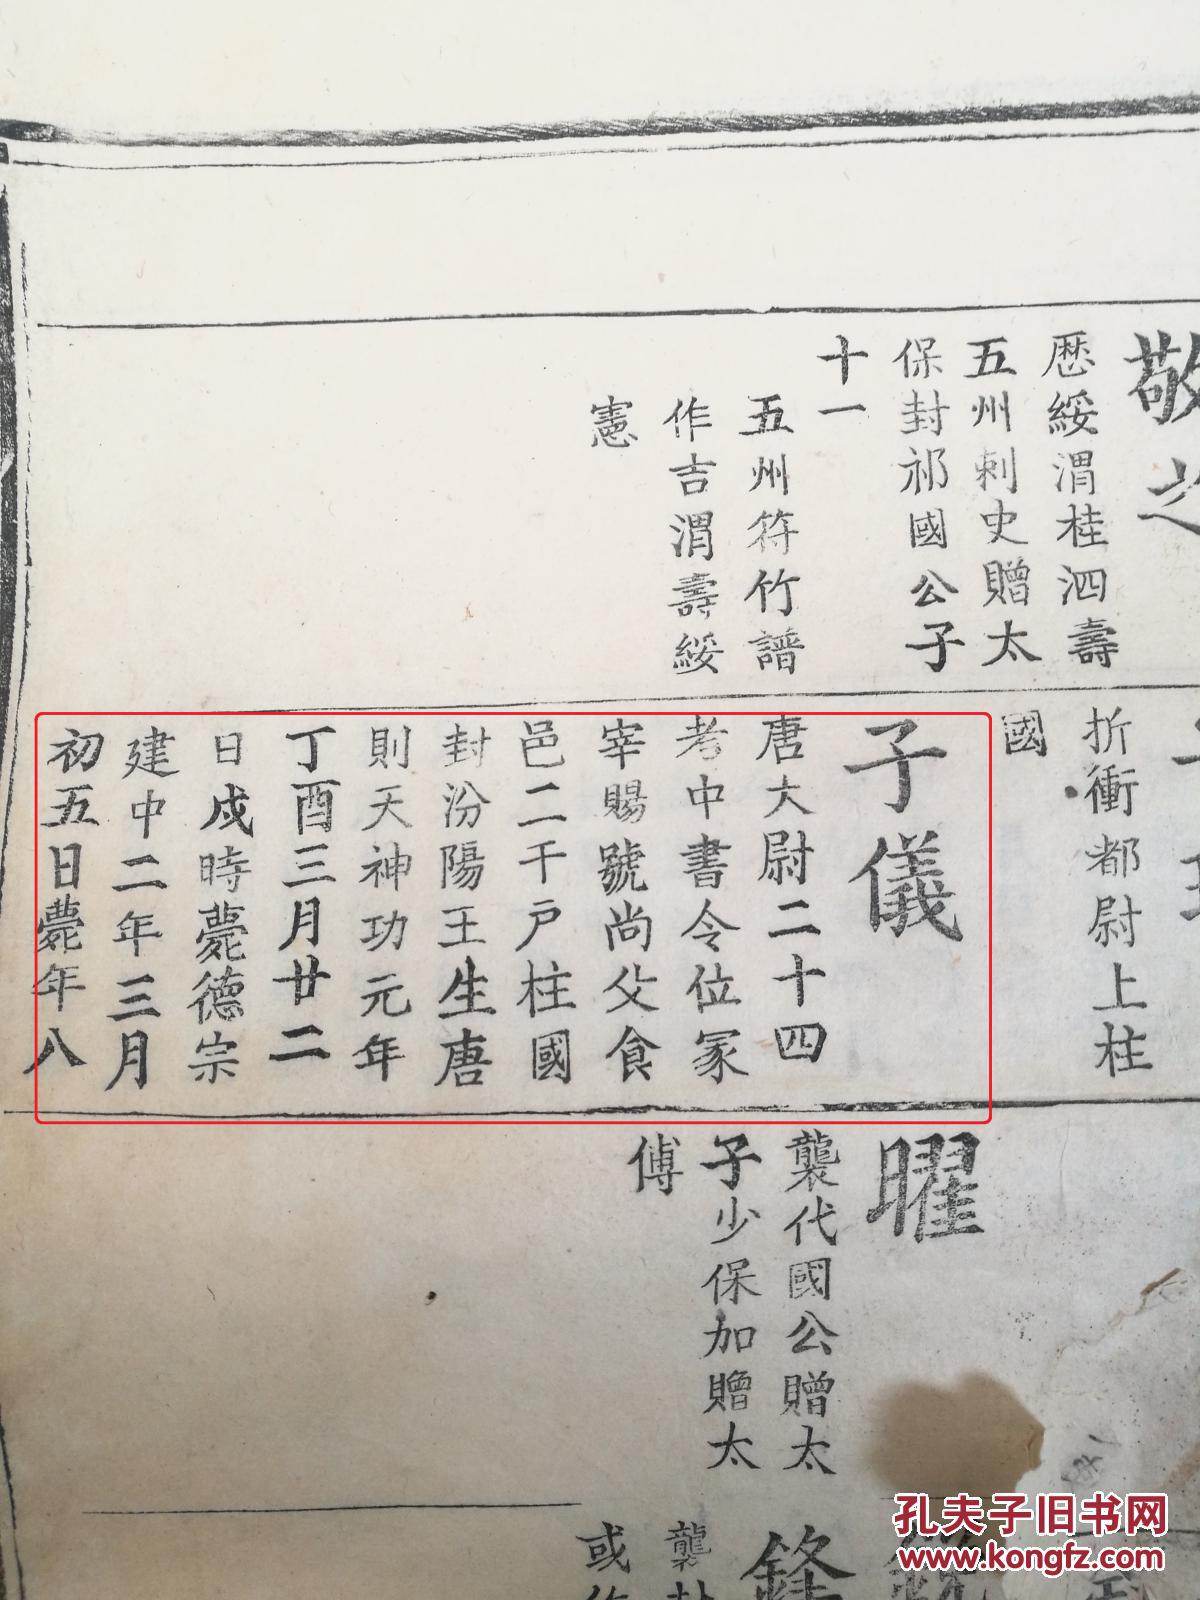 敬之
厯綏渭桂泗壽
五州刺史贈太
保封祁國公子
十一
五州符竹譜
作吉渭壽綏
憲
子
折衝都尉上柱
國
子儀
唐大尉二十四
考中書令位冢
宰賜號尚父食
邑二千戸柱國
封汾陽王生唐
則天神功元年
丁酉三月廿二
日戌時薨德宗
建中二年三月
初五日薨年八
曜
襲代國公贈太
子少保加贍太
傅
鋒
襲
或
孔夫子旧书网
www.kongfz.com